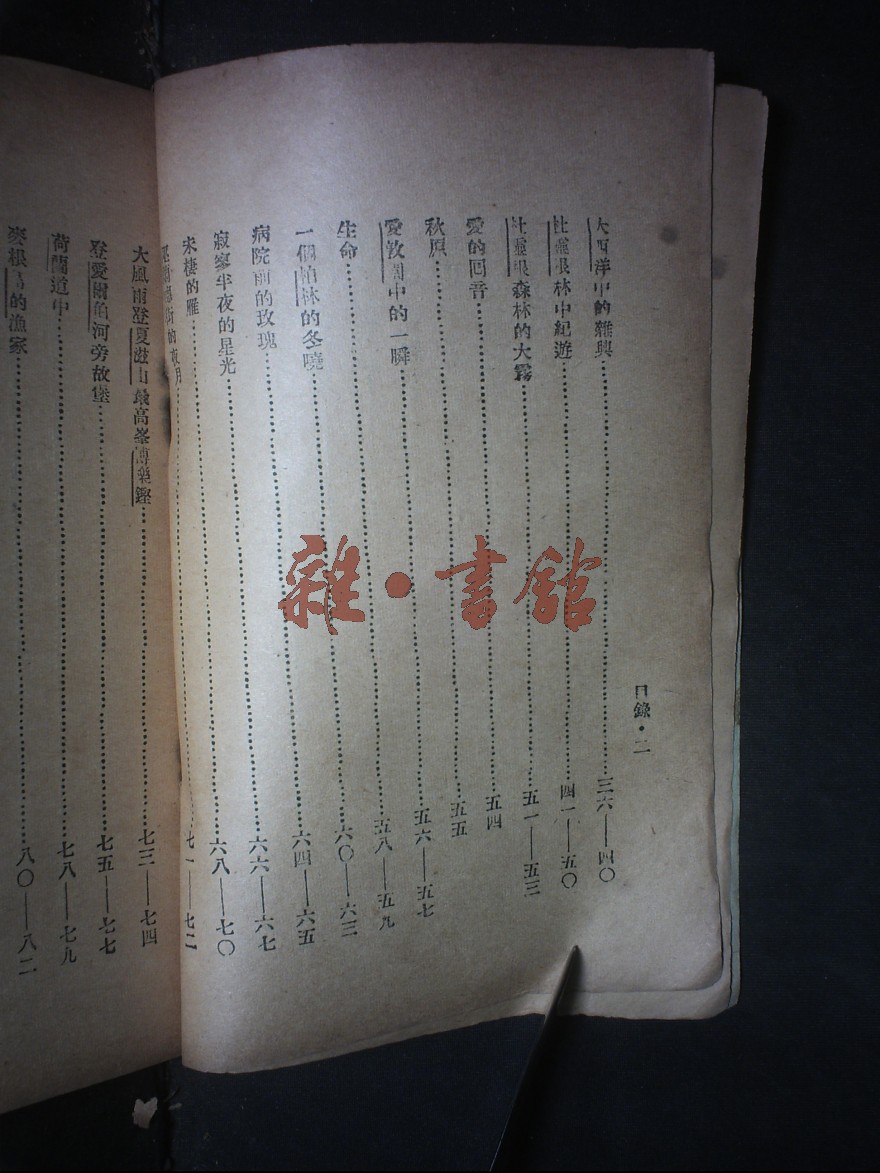 目錄・二
大西洋中的雜興……三六——四〇
杜靈根林中紀遊……四一——五〇
杜靈根森林的大霧……五一——五三
愛的回音……五四
秋原……五五
愛敦園中的一瞬……五六——五七
生命……五八——五九
一個柏林的冬曉……六〇——六三
病院前的玫瑰……六四——六五
寂寥半夜的星光……六六——六七
未棲的雁……六八——七〇
街的夜月……七一——七二
大風雨登夏滋山最高峯博樂鏗……七三——七四
登愛爾伯河旁故堡……七五——七七
荷蘭道中……七八——七九
麥根的漁家……八〇——八二
雜・書館